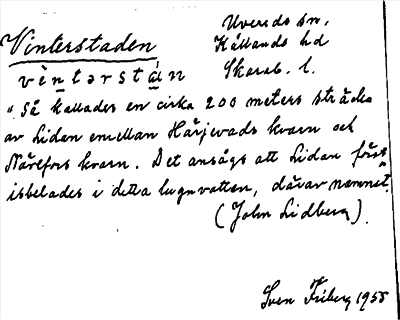 Vinterstaden
Uvereds sn.
Kållands hd
Skarab. l.
vìntərstán
"Så kallades en cirka 200 meters sträcka
av Lidan emellan Härjevads kvarn och
Nårefors kvarn. Det ansågs att Lidan först
isbelades i detta lugnvatten, därav namnet."
(John Lidberg)
Sven Friberg 1955